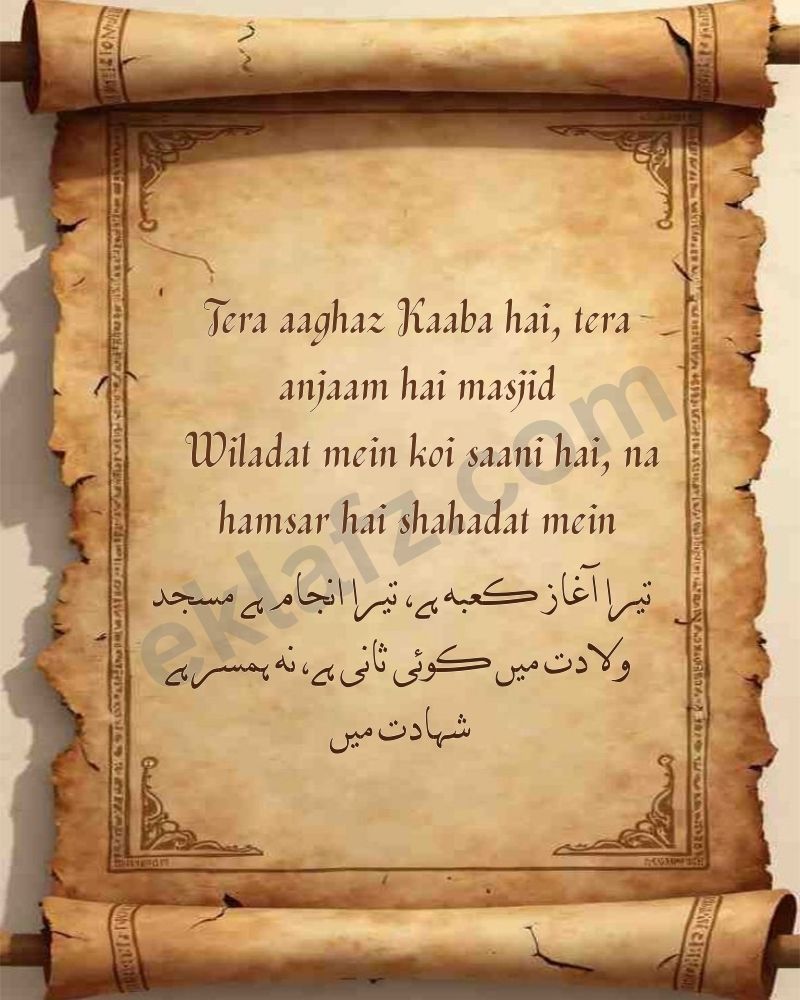 Tera aaghaz Kaaba hai, tera
anjaam hai masjid
Wiladat mein koi saani hai, na
hamsar hai shahadat mein
تیرا آغاز کعبہ ہے، تیرا انجام ہے مسجد
ولادت میں کوئی ثانی ہے، نہ ہمسر ہے
شہادت میں
eklafz.com